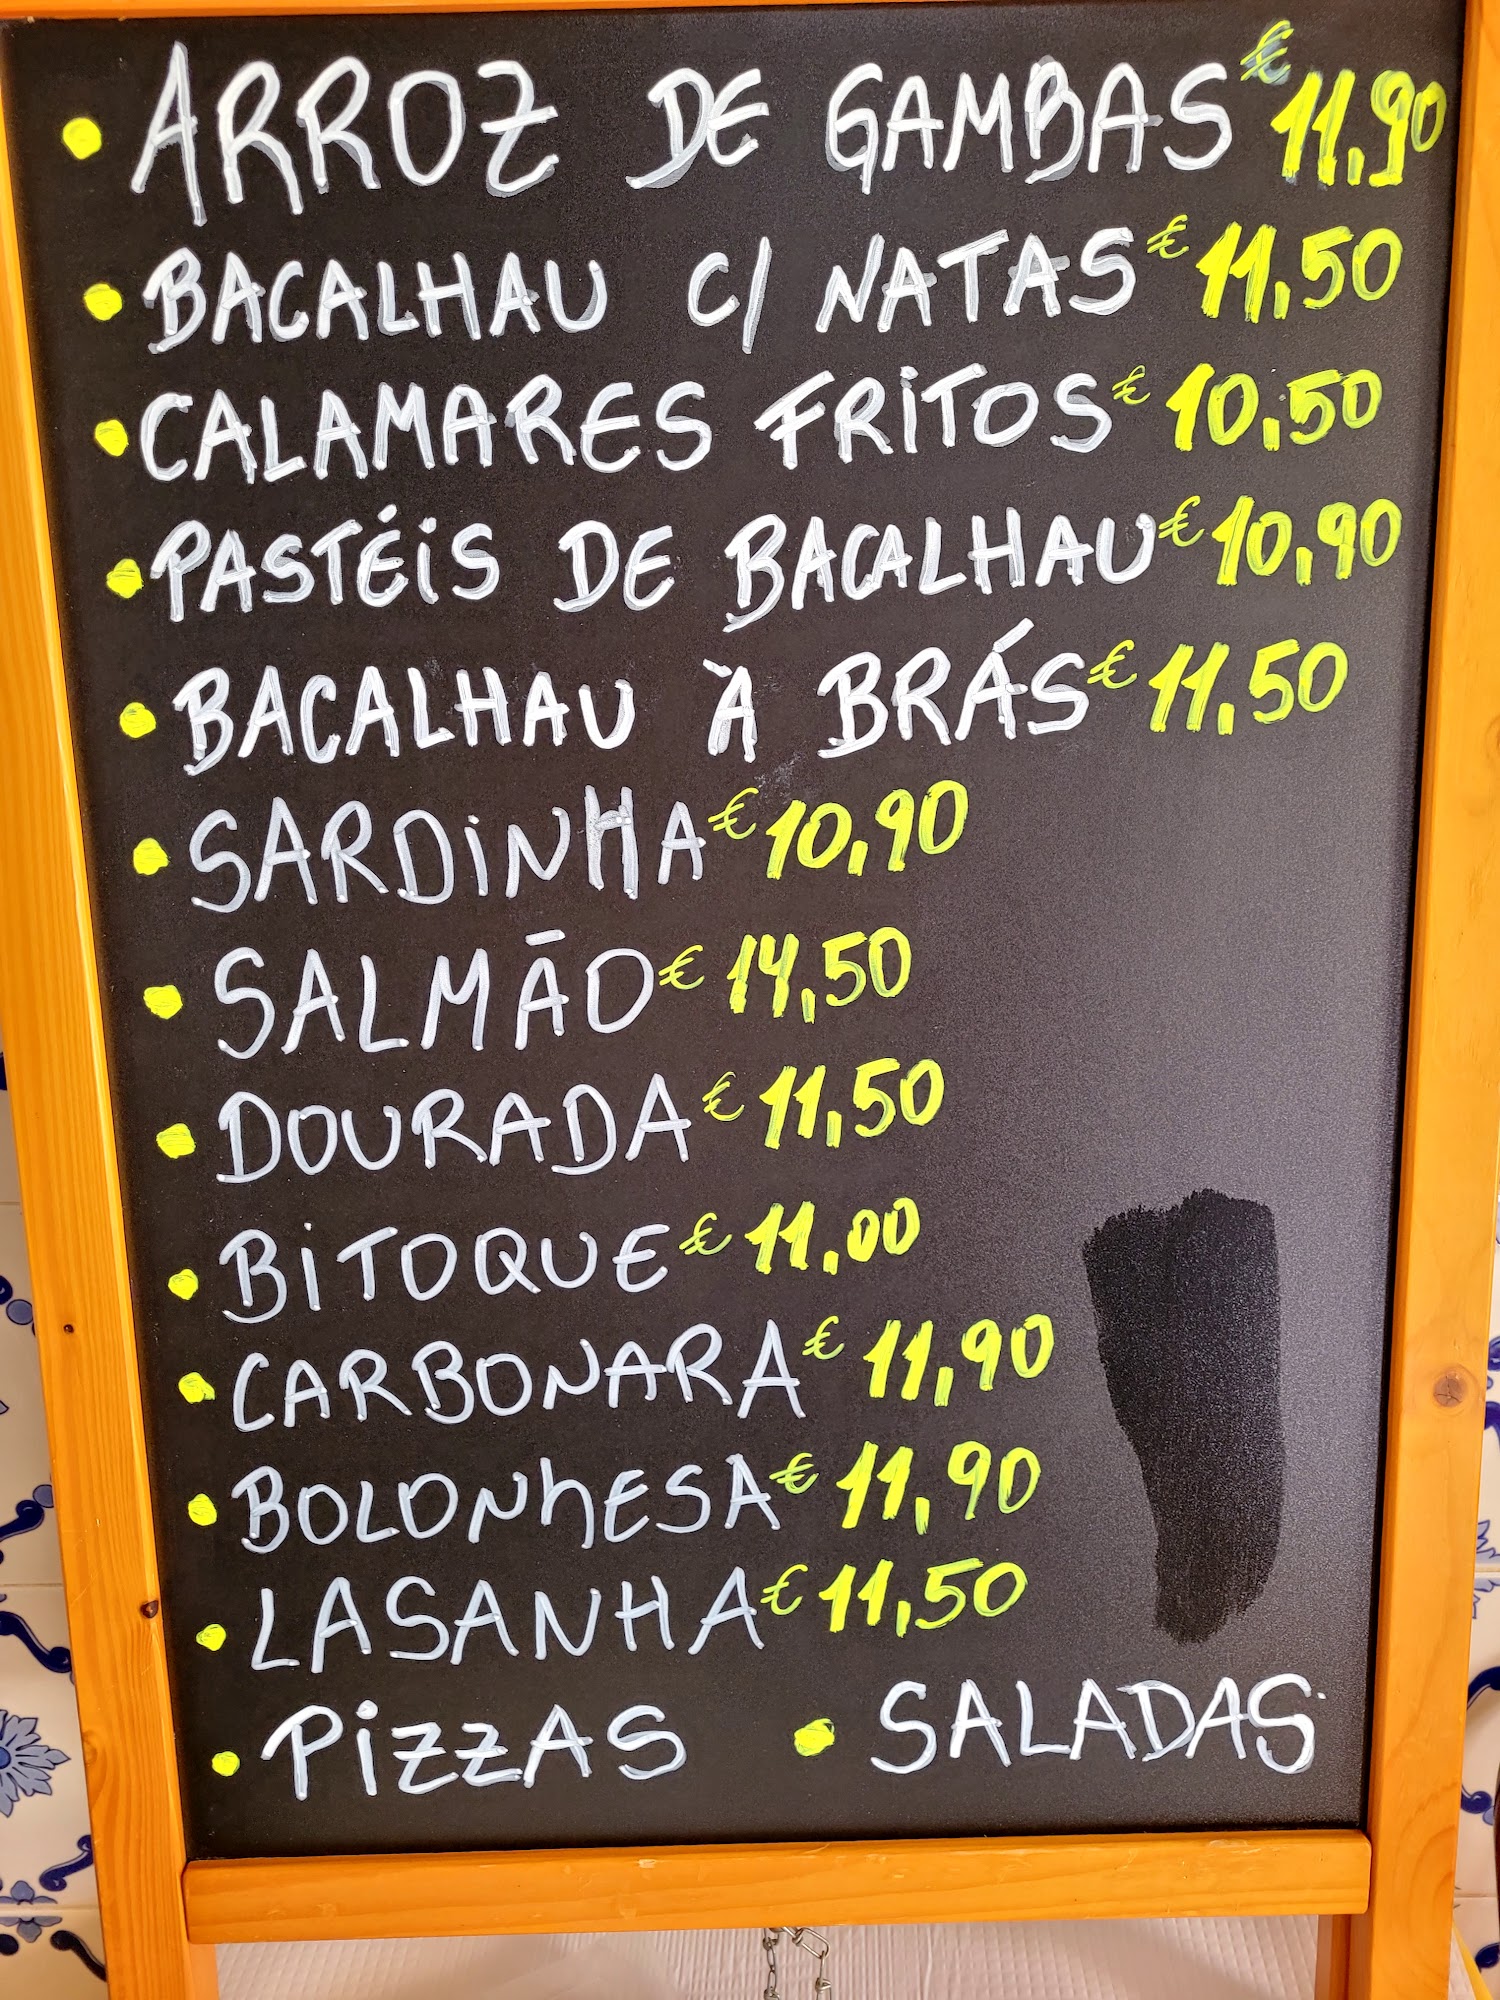 • ARROZ DE GAMBAS € 11,90
• BACALHAU C/ NATAS € 11,50
• CALAMARES FRITOS € 10,50
• PASTÉIS DE BACALHAU € 10,90
• BACALHAU À BRÁS € 11,50
• SARDINHA € 10,90
• SALMÃO € 14,50
• DOURADA € 11,50
• BITOQUE € 11,00
• CARBONARA € 11,90
• BOLONHESA € 11,90
• LASANHA € 11,50
• PIZZAS • SALADAS